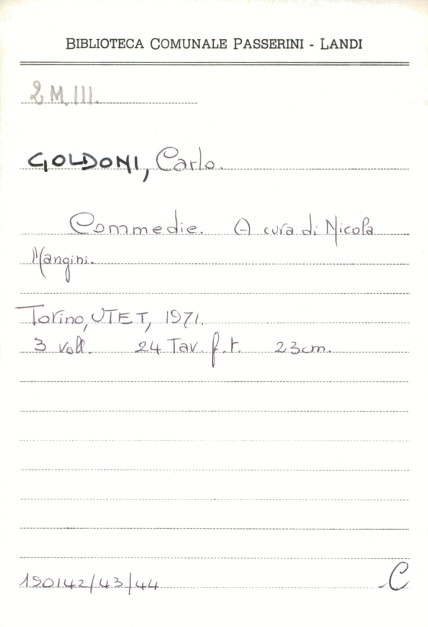 BIBLIOTECA COMUNALE PASSERINI - LANDI
2 M III.
GOLDONI, Carlo.
Commedie. A cura di Nicola
Mangini.
Torino, UTET, 1971.
3 voll. 24 Tav. f.t. 23cm.
190142/43/44 C